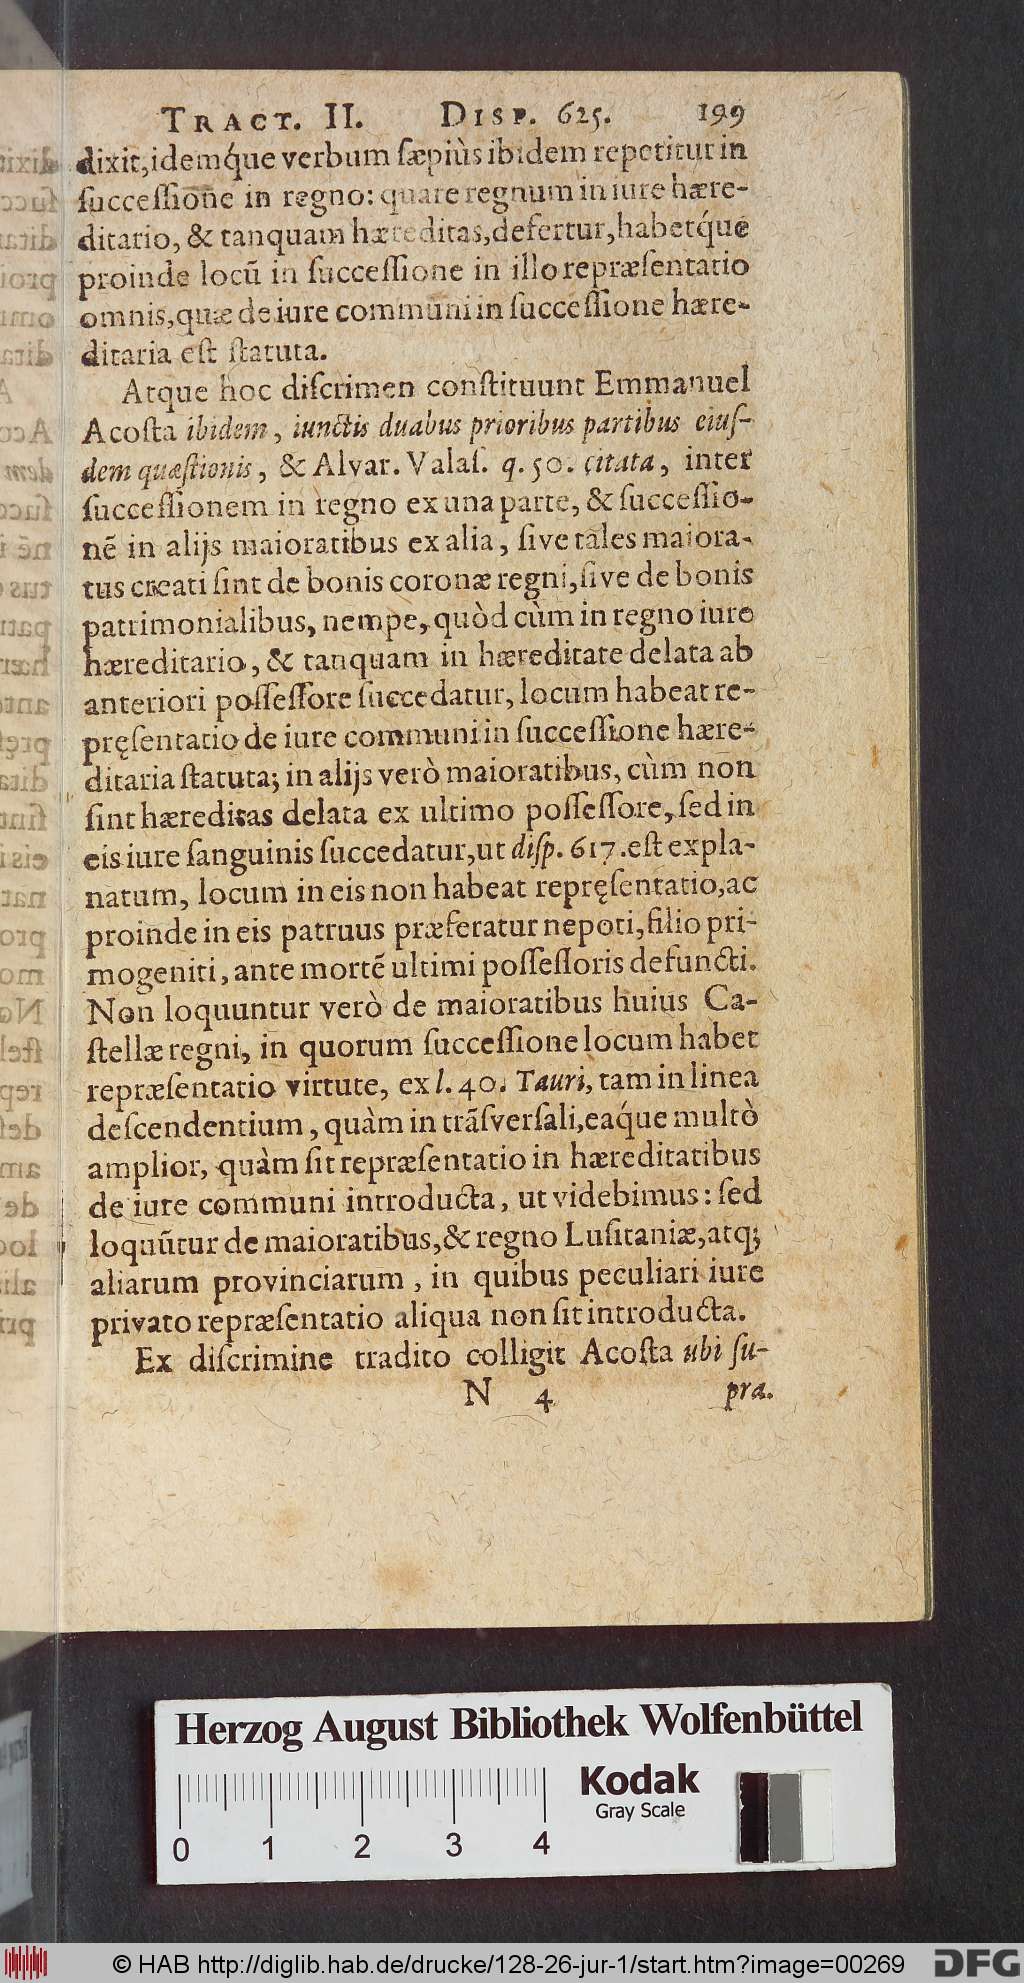 TRACT. II. DISP. 625. 199
dixit, idemq́ue verbum sæpiùs ibidem repetitur in
successione in regno: quare regnum in iure hære-
ditario, & tanquam hæreditas, defertur, habetq́ue
proinde locũ in successione in illo repræsentatio
omnis, quæ de iure communi in successione hære-
ditaria est statuta.
Atque hoc discrimen constituunt Emmanuel
Acosta ibidem, iunctis duabus prioribus partibus eius-
dem quæstionis, & Alvar. Valas. q. 50. citata, inter
successionem in regno ex una parte, & successio-
nẽ in alijs maioratibus ex alia, sive tales maiora-
tus creati sint de bonis coronæ regni, sive de bonis
patrimonialibus, nempe, quòd cùm in regno iure
hæreditario, & tanquam in hæreditate delata ab
anteriori possessore succedatur, locum habeat re-
pręsentatio de iure communi in successione hære-
ditaria statuta; in alijs verò maioratibus, cùm non
sint hæreditas delata ex ultimo possessore, sed in
eis iure sanguinis succedatur, ut disp. 617. est expla-
natum, locum in eis non habeat repręsentatio, ac
proinde in eis patruus præferatur nepoti, filio pri-
mogeniti, ante mortẽ ultimi possessoris defuncti.
Non loquuntur verò de maioratibus huius Ca-
stellæ regni, in quorum successione locum habet
repræsentatio virtute, ex l. 40. Tauri, tam in linea
descendentium, quàm in trãsversali, eaq́ue multò
amplior, quàm sit repræsentatio in hæreditatibus
de iure communi introducta, ut videbimus: sed
loquũtur de maioratibus, & regno Lusitaniæ, atq;
aliarum provinciarum, in quibus peculiari iure
privato repræsentatio aliqua non sit introducta.
Ex discrimine tradito colligit Acosta ubi su-
N 4 pra.
Herzog August Bibliothek Wolfenbüttel
Kodak
Gray Scale
0 1 2 3 4
© HAB http://diglib.hab.de/drucke/128-26-jur-1/start.htm?image=00269
DFG